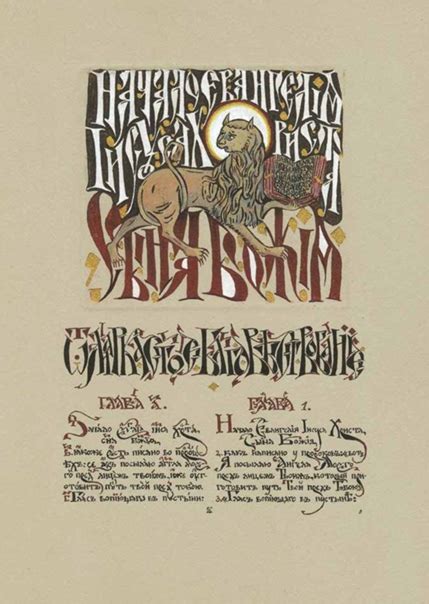 НАЧАЛО ЕВАНГЕЛІЯ
ІИСУСА ХРИСТА
СЫНА БОЖІЯ
Ѿ МАРКА СВЯТОЕ БЛАГОВѢСТВОВАНІЕ
ГЛАВА А.
сна Божіа,
Якоже есть писано во проро-
цѣхъ: се азъ посылаю аггла моего
предъ лицемъ твоимъ, иже уго-
товитъ путь твой предъ тобою.
Гласъ вопіющаго въ пустыни:
ГЛАВА 1.
Начало Евангелія Іисуса Христа,
Сына Божія,
2. какъ написано у пророковъ: вотъ
Я посылаю Ангела Моего
предъ лицемъ Твоимъ, который при-
готовитъ путь Твой предъ Тобою.
3. Гласъ вопіющаго въ пустынѣ: